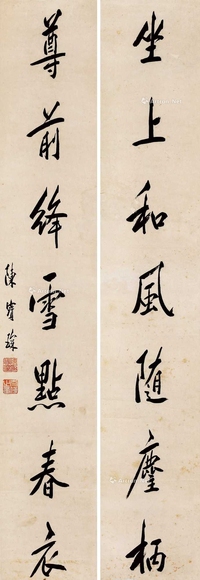 坐上和風随麈柄
尊前絳雪點春衣
陳寶琛